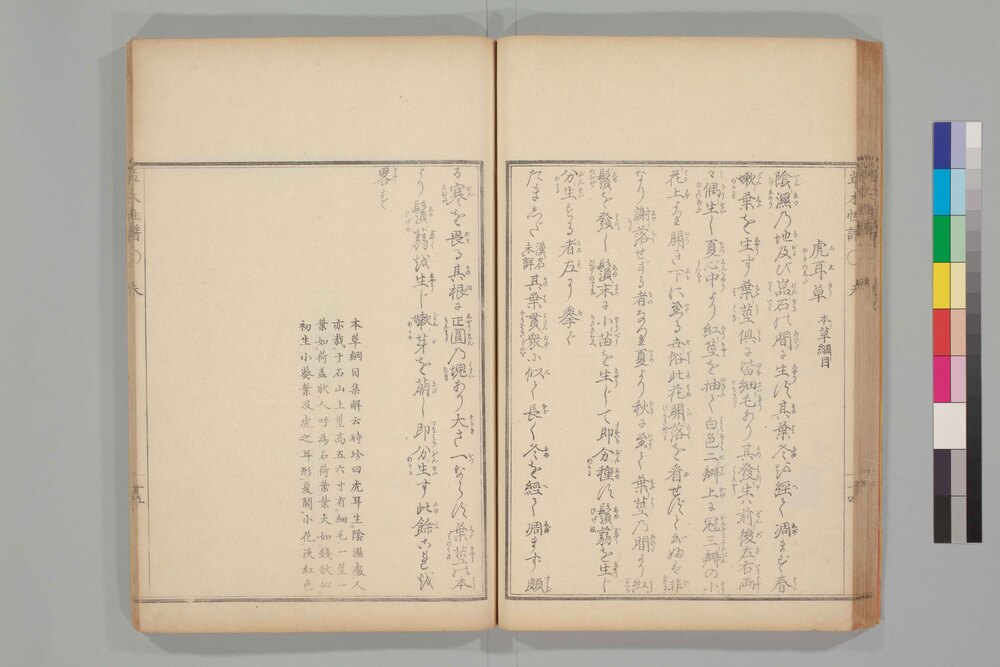 虎耳草 本草綱目
陰濕乃地及び岩石の間に生ず其葉冬を經て凋まず春
嫩葉を生ず葉莖俱に皆細毛あり其發生は前後左右兩
々偶生し夏心中より紅莖を抽て白色二瓣上に冠三瓣の小
花上より開き下に至る世俗此花開落を看せずと
なり謝落せざる者なり夏より秋に至て葉莖乃間より紅
鬚を發し鬚末に小苗を生じて即分種す鬚蒻を生じ
分生する者左に擧ぐ
たましだ 漢名未詳 其葉貫衆に似て長く冬を經て凋まず頗
る寒を畏る其根に正圓乃塊あり大さ一ならず葉莖の本
より鬚蒻を生じ嫩芽を萌し即分生す此餘これを
畧す
本草綱目集解云時珍曰虎耳生陰濕處人
亦栽于石山上莖高五六寸有細毛一莖一
葉如荷蓋狀人呼為石荷葉葉大如錢狀似
初生小葵葉及虎之耳形夏開小花淡紅色